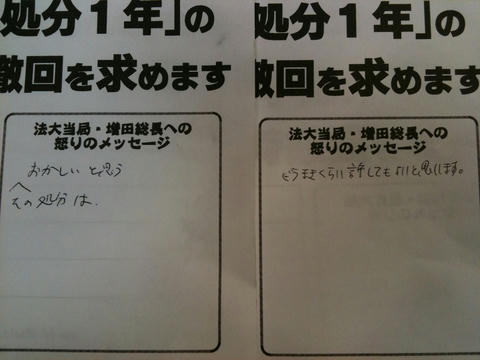 処分１年」の
撤回を求めます
法大当局・増田総長への
怒りのメッセージ
おかしいと思う
その処分は.
処分１年」の
撤回を求めます
法大当局・増田総長への
怒りのメッセージ
くらい許してもよいと思います。